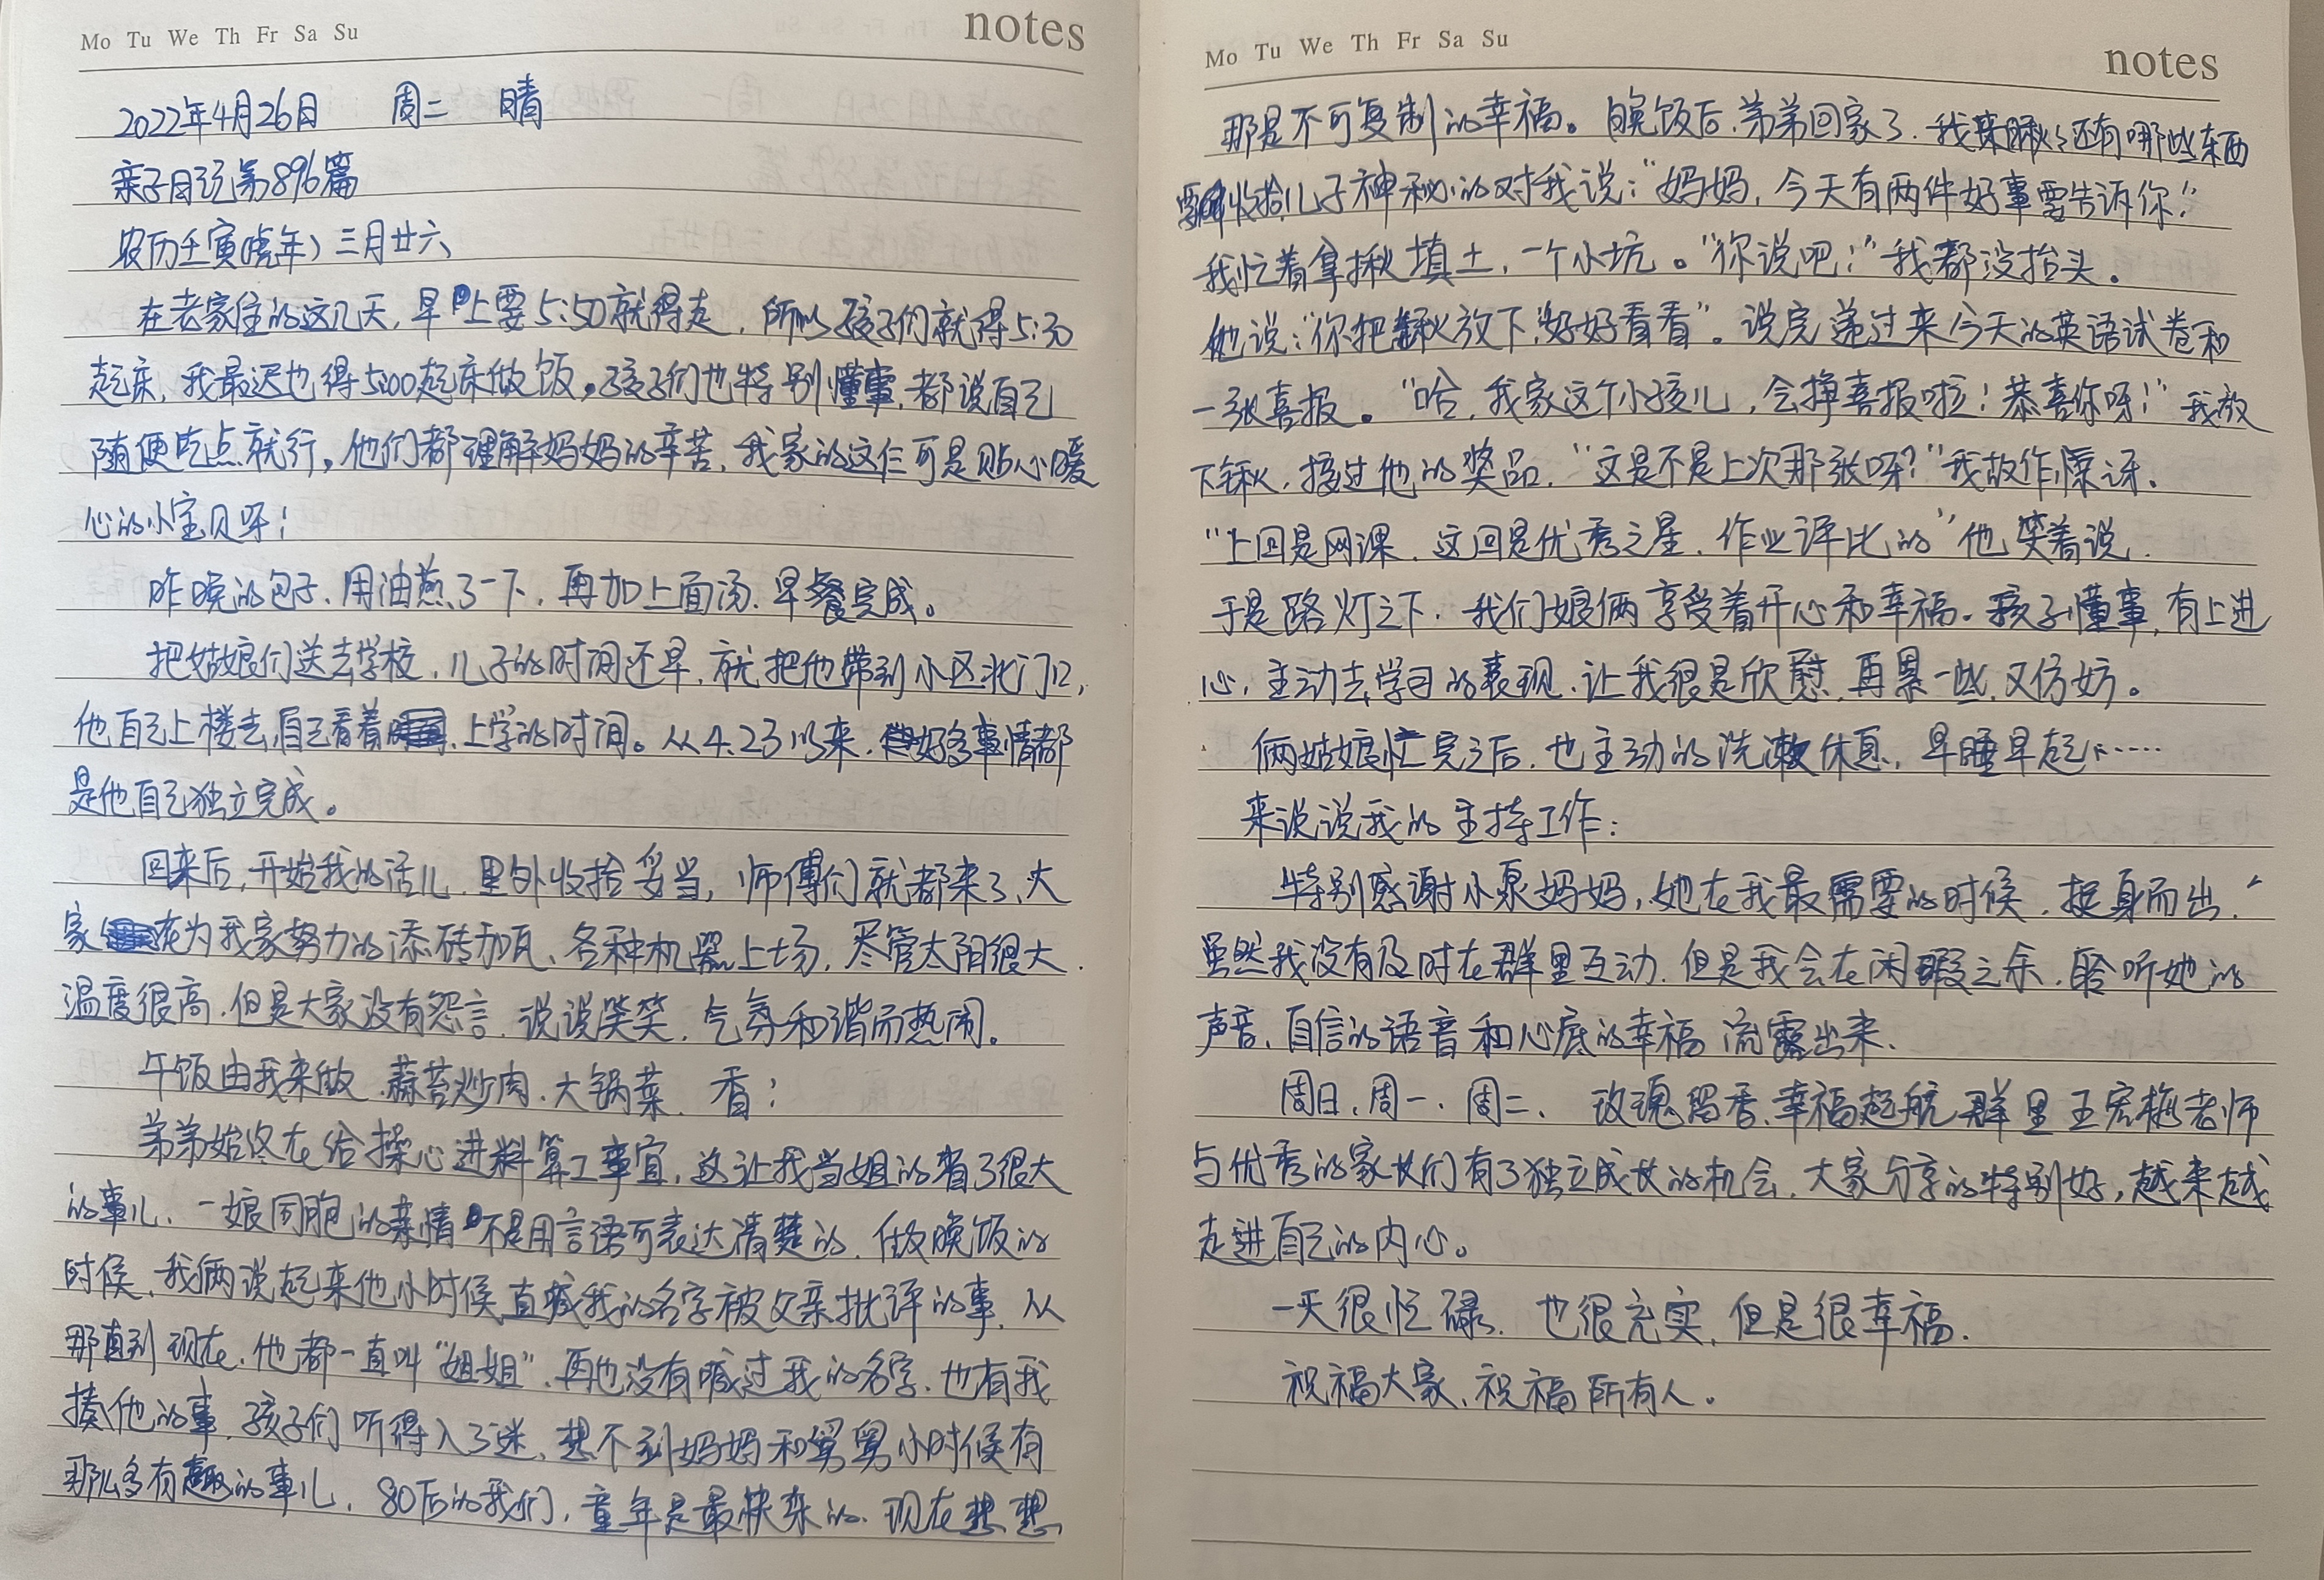 Mo Tu We Th Fr Sa Su
notes
2022年4月26日 周二 晴
亲子日记第896篇
农历壬寅(虎年)三月廿六
在老家住的这几天,早上要5:50就得走,所以孩子们就得5:30
起床,我最迟也得5:00起床做饭。孩子们也特别懂事,都说自己
随便吃点就行,他们都理解妈妈的辛苦,我家的这仨可是贴心暖
心的小宝贝呀!
昨晚的包子,用油煎了一下,再加上面汤,早餐完成。
把姑娘们送去学校,儿子的时间还早,就把他带到小区北门口,
他自己上楼去,自己看着上学的时间。从4.23以来,好多事情都
是他自己独立完成。
回来后,开始我的活儿,里外收拾妥当,师傅们就都来了,大
家在为我家努力的添砖加瓦,各种机器上场,尽管太阳很大,
温度很高,但是大家没有怨言,说说笑笑,气氛和谐而热闹。
午饭由我来做,蒜苔炒肉,大锅菜,香!
弟弟始终在给操心进料算工事宜,这让我当姐的省了很大
的事儿,一娘同胞的亲情不是用言语可表达清楚的,做晚饭的
时候,我俩说起来他小时候直喊我的名字被父亲批评的事,从
那直到现在,他都一直叫“姐姐”,再也没有喊过我的名字,也有我
揍他的事,孩子们听得入了迷,想不到妈妈和舅舅小时候有
那么多有趣的事儿,80后的我们,童年是最快乐的,现在想想,
Mo Tu We Th Fr Sa Su
notes
那是不可复制的幸福。晚饭后,弟弟回家了,我来瞅瞅还有哪些东西
要收拾,儿子神秘的对我说:“妈妈,今天有两件好事要告诉你!”
我忙着拿揪填土,一个小坑。“你说吧!”我都没抬头。
他说:“你把锹放下,好好看看”。说完递过来今天的英语试卷和
一张喜报。“哈,我家这个小孩儿,会挣喜报啦!恭喜你呀!”我放
下锹,接过他的奖品,“这是不是上次那张呀?”我故作惊讶,
“上回是网课,这回是优秀之星,作业评比的”他笑着说,
于是路灯之下,我们娘俩享受着开心和幸福。孩子懂事,有上进
心,主动去学习的表现,让我很是欣慰,再累一些,又何妨。
俩姑娘忙完之后,也主动的洗漱休息,早睡早起……
来说说我的主持工作:
特别感谢小泉妈妈,她在我最需要的时候,挺身而出,
虽然我没有及时在群里互动,但是我会在闲暇之余,聆听她的
声音,自信的语音和心底的幸福流露出来,
周日,周一,周二,玫瑰留香,幸福起航群里王宏梅老师
与优秀的家长们有了独立成长的机会,大家分享的特别好,越来越
走进自己的内心。
一天很忙碌,也很充实,但是很幸福,
祝福大家,祝福所有人。